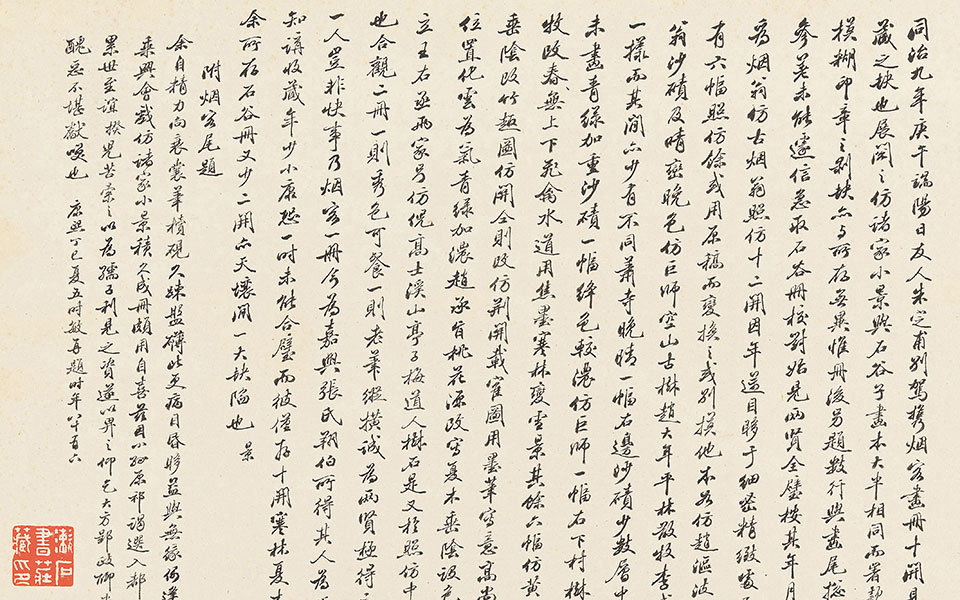 同治九年庚午端陽日友人朱定甫別駕攜烟客畫冊十開見
藏之缺也展閱之仿諸家小景與石谷子畫本大半相同而署款
模糊印章之剥缺亦与所存無異惟冊後另題數行與畫尾
參差未能遽信急取石谷冊校對始見兩賢全璧按其年月
為烟翁仿古烟翁照仿十二開因年邁目眵于細密精緻
有六幅照仿餘或用原稿而變換之或別摸他本如仿趙漚波
翁沙磧及晴巒晚色仿巨師空山古樹趙大年平林散牧李
一樣而其間亦少有不同蕭寺晚晴一幅石邊沙磧少數層
未畫青綠加重沙磧一幅絳色較濃仿巨師一幅右下村樹
牧改春無上下飛禽水道用焦墨寒林變雪景其餘六幅仿黃
垂陰改竹趣圖仿關仝則改仿荆關載雀圖用墨筆寫意高尚
位置化雲為氣青綠加濃趙承旨桃花源改寫夏木垂陰設色
立王右丞兩家另仿倪高士溪山亭子梅道人樹石是又於照仿中
也合觀二冊一則秀色可餐一則老筆縱横誠為兩賢極得
一人豈非快事乃烟客一冊今為嘉興張氏翔伯所得其人為
知講收藏年少小康恐一時未能合璧而彼僅存十開寒林夏
余所存石谷冊又少二開亦天壤間一大缺陷也 景
附烟客尾題
余自精力向衰裳筆櫝硯久疎盤礴比更病目昏眵益與無緣何
乘興會戲仿諸家小景積久成冊頗用自喜茲因小孫原祁謁選入都
累世至誼揆兒苦索之以為孺子利見之資遂以畀之仰乞大方郢政
醜惡不堪獻嗤也 康熙丁巳夏五時敏再題時年八十有六
漱石
書莊
藏印